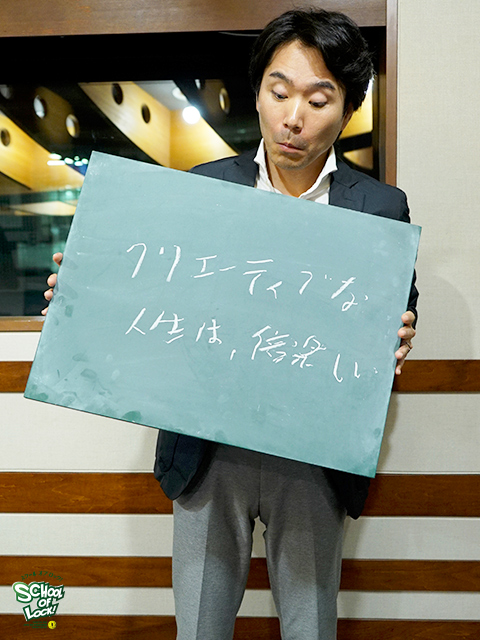 クリエーティブな
人生は、倍楽しい
SCHOOL
OF
LOCK!